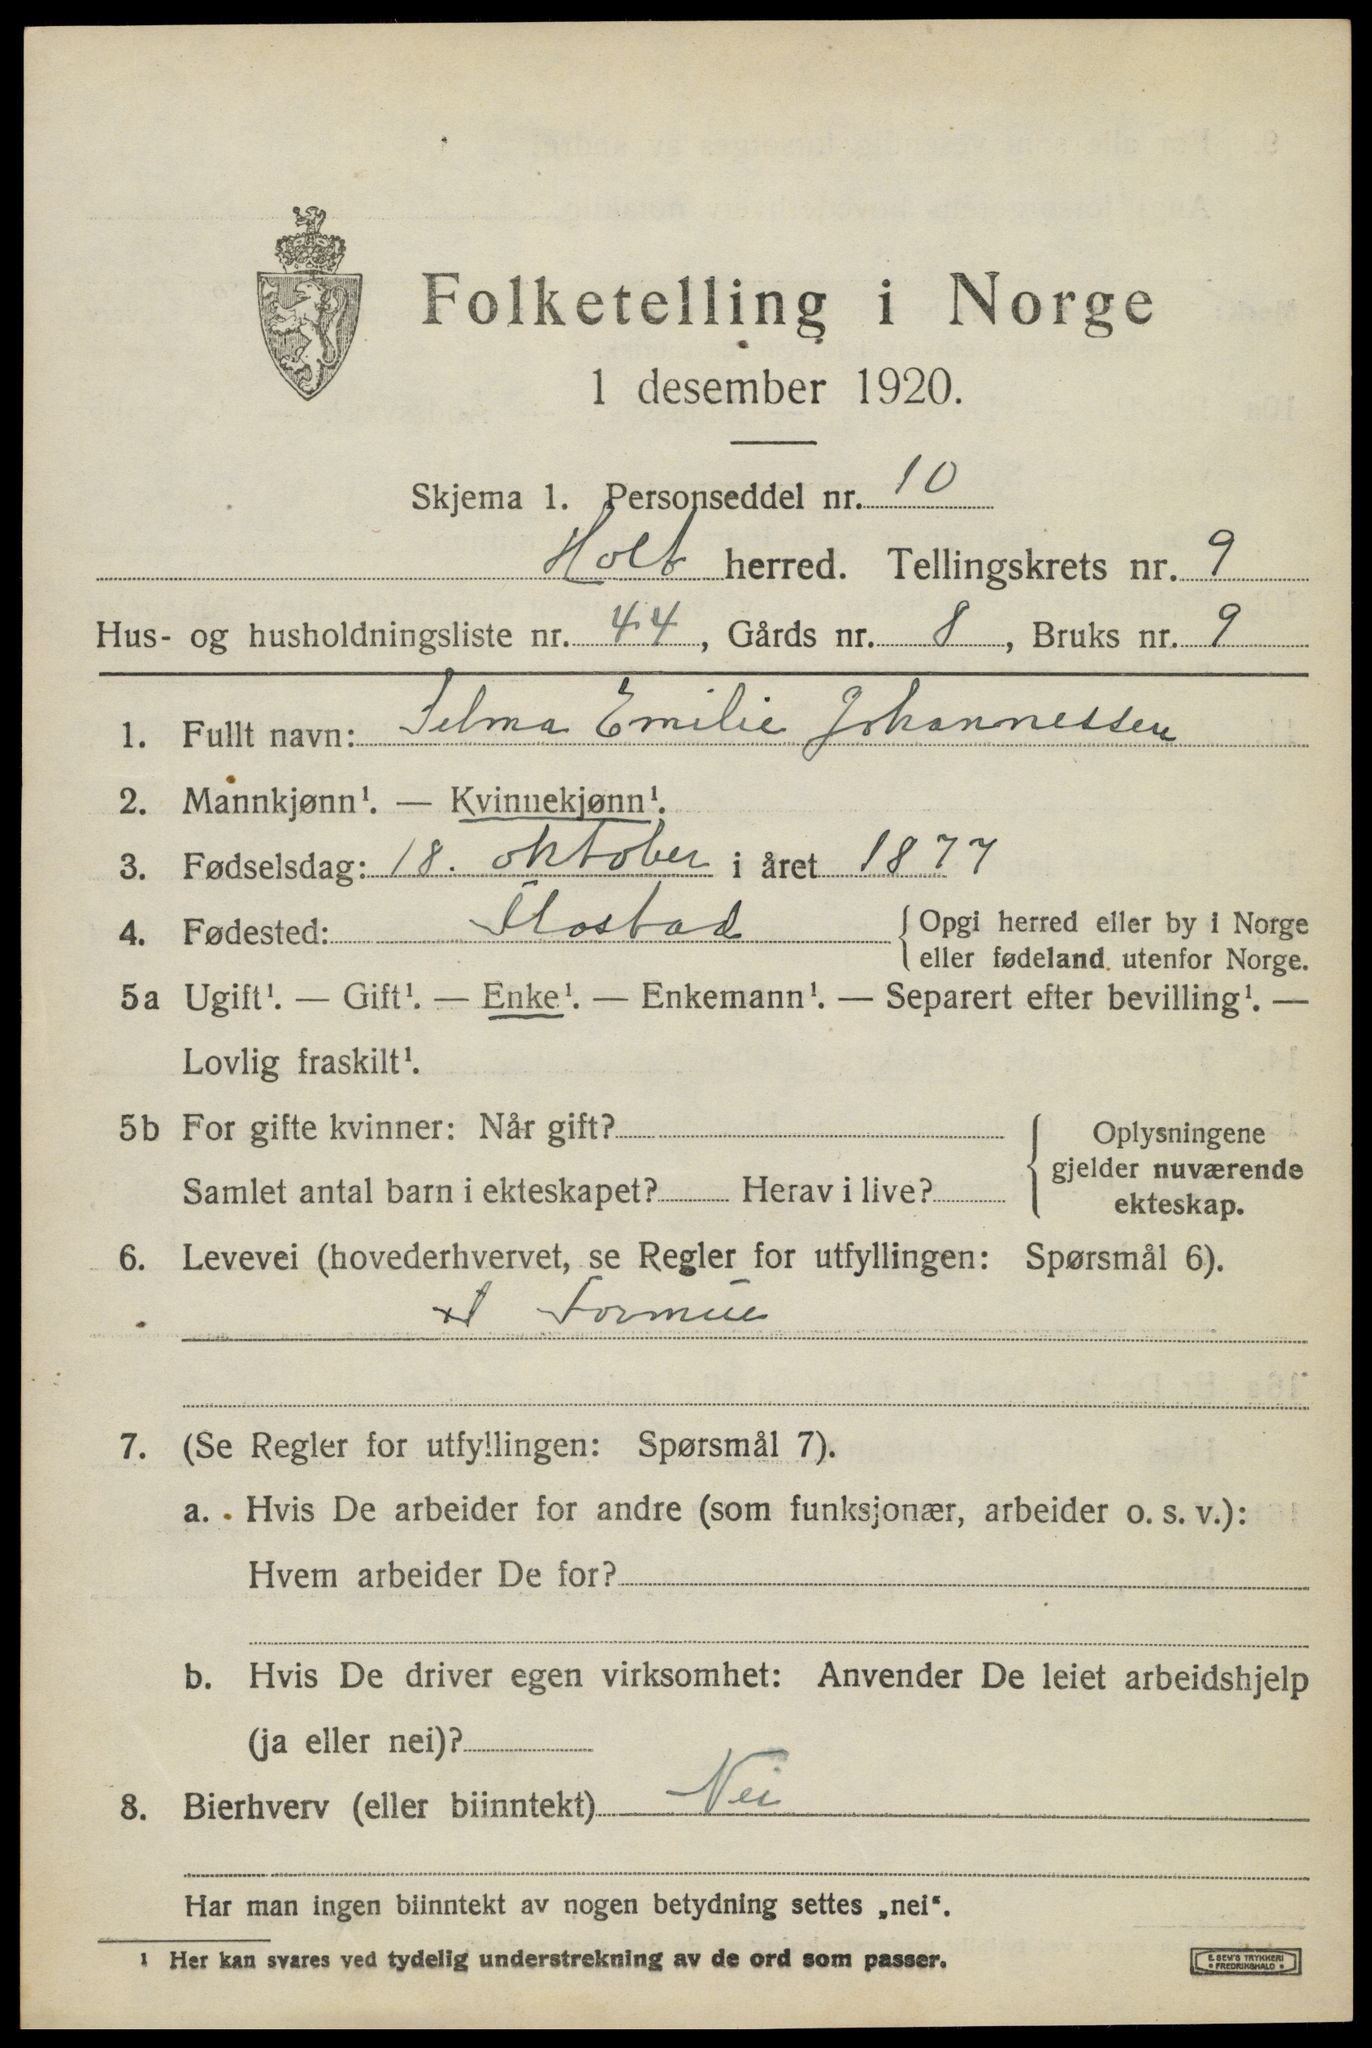 Folketelling i Norge
1 desember 1920.
Skjema 1. Personseddel nr. 10
Holt herred. Tellingskrets nr. 9
Hus- og husholdningsliste nr. 44, Gårds nr. 8, Bruks nr. 9
1. Fullt navn: Selma Emilie Johannessen
2. Mannkjønn¹. — Kvinnekjønn¹.
3. Fødselsdag: 18. oktober i året 1877
4. Fødested: Flostad { Opgi herred eller by i Norge
eller fødeland utenfor Norge.
5a Ugift¹. — Gift¹. — Enke¹. — Enkemann¹. — Separert efter bevilling¹. —
Lovlig fraskilt¹.
5b For gifte kvinner: Når gift? { Oplysningene
gjelder nuværende
Samlet antal barn i ekteskapet? Herav i live?
ekteskap.
6. Levevei (hovederhvervet, se Regler for utfyllingen: Spørsmål 6).
Formue
7. (Se Regler for utfyllingen: Spørsmål 7).
a. Hvis De arbeider for andre (som funksjonær, arbeider o. s. v.):
Hvem arbeider De for?
b. Hvis De driver egen virksomhet: Anvender De leiet arbeidshjelp
(ja eller nei)?
8. Bierhverv (eller biinntekt) Nei
Har man ingen biinntekt av nogen betydning settes „nei“.
¹ Her kan svares ved tydelig understrekning av de ord som passer.
E. SEM'S TRYKKERI
• FREDRIKSHALD •